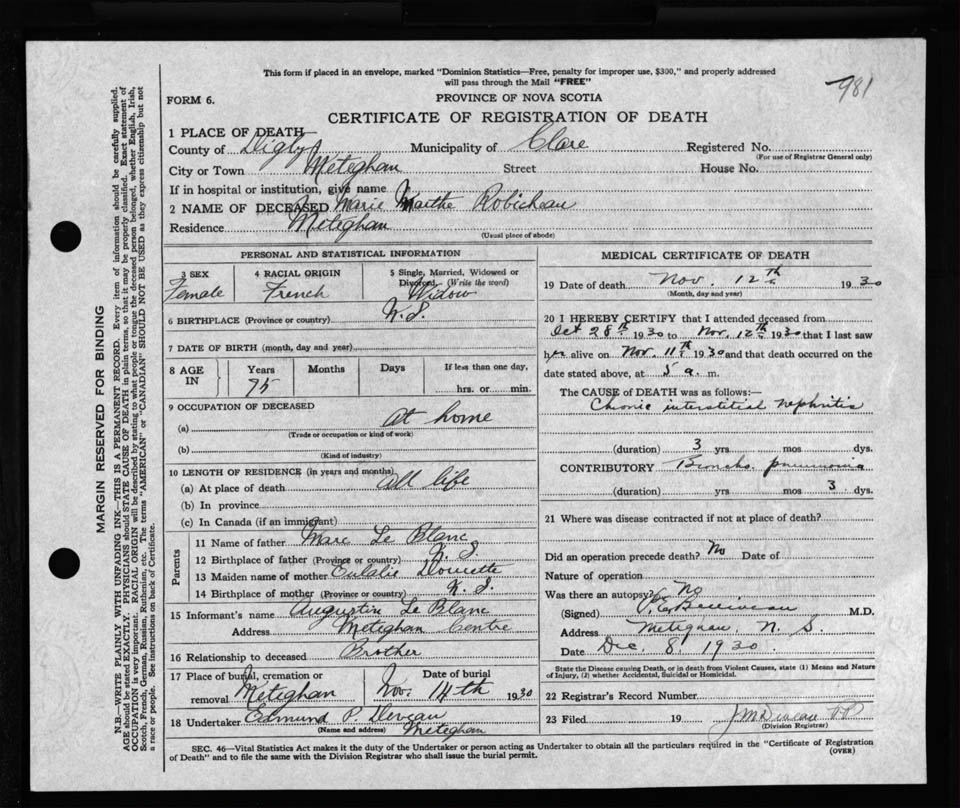 This form if placed in an envelope, marked "Dominion Statistics—Free, penalty for improper use, $300," and properly addressed
will pass through the Mail "FREE"
981
FORM 6.
PROVINCE OF NOVA SCOTIA
CERTIFICATE OF REGISTRATION OF DEATH
1 PLACE OF DEATH
County of Digby Municipality of Clare Registered No.
(For use of Registrar General only)
City or Town Meteghan Street House No.
If in hospital or institution, give name
2 NAME OF DECEASED Marie Marthe Robicheau
Residence Meteghan
(Usual place of abode)
PERSONAL AND STATISTICAL INFORMATION
3 SEX 4 RACIAL ORIGIN 5 Single, Married, Widowed or
Divorced, (Write the word)
Female French Widow
6 BIRTHPLACE (Province or country) N.S.
7 DATE OF BIRTH (month, day and year)
8 AGE IN Years Months Days If less than one day,
75 hrs. or min.
9 OCCUPATION OF DECEASED
(a) At home
(Trade or occupation or kind of work)
(b)
(Kind of industry)
10 LENGTH OF RESIDENCE (in years and months)
(a) At place of death all life
(b) In province
(c) In Canada (if an immigrant)
Parents
11 Name of father Marc Le Blanc
12 Birthplace of father (Province or country) N.S.
13 Maiden name of mother Eulalie Doucette
14 Birthplace of mother (Province or country) N.S.
15 Informant's name Augustin Le Blanc
Address Meteghan Centre
16 Relationship to deceased Brother
17 Place of burial, cremation or Date of burial
removal Meteghan Nov. 14th 1930
18 Undertaker Edmund P. Deveau
(Name and address) Meteghan
MEDICAL CERTIFICATE OF DEATH
19 Date of death Nov. 12th 1930
(Month, day and year)
20 I HEREBY CERTIFY that I attended deceased from
Oct 28th 1930 to Nov. 12th 1930 that I last saw
her alive on Nov. 11th 1930 and that death occurred on the
date stated above, at 5 a. m.
The CAUSE OF DEATH was as follows:
Chronic interstitial nephritis
(duration) 3 yrs mos dys.
CONTRIBUTORY Broncho pneumonia
(duration) yrs mos 3 dys.
21 Where was disease contracted if not at place of death?
Did an operation precede death? No Date of
Nature of operation
Was there an autopsy? No
(Signed) M.D.
Address Meteghan, N. S.
Date Dec. 8. 1930.
State the Disease causing Death, or in death from Violent Causes, state (1) Means and Nature
of Injury, (2) whether Accidental, Suicidal or Homicidal.
22 Registrar's Record Number
23 Filed 19
(Division Registrar)
SEC. 46—Vital Statistics Act makes it the duty of the Undertaker or person acting as Undertaker to obtain all the particulars required in the "Certificate of Registration
of Death" and to file the same with the Division Registrar who shall issue the burial permit. (OVER)
MARGIN RESERVED FOR BINDING
N.B.—WRITE PLAINLY WITH UNFADING INK—THIS IS A PERMANENT RECORD. Every item of information should be carefully supplied.
AGE should be stated EXACTLY. PHYSICIANS should STATE CAUSE OF DEATH in plain terms, so that it may be properly classified. Exact statement of
OCCUPATION is very important. RACIAL ORIGIN will be described by stating to what people or tongue the deceased person belonged, whether English, Irish,
Scotch, French, German, Russian, Ruthenian, etc. The terms "AMERICAN" or "CANADIAN" SHOULD NOT BE USED as they express citizenship but not
a race or people. See instructions on back of Certificate.